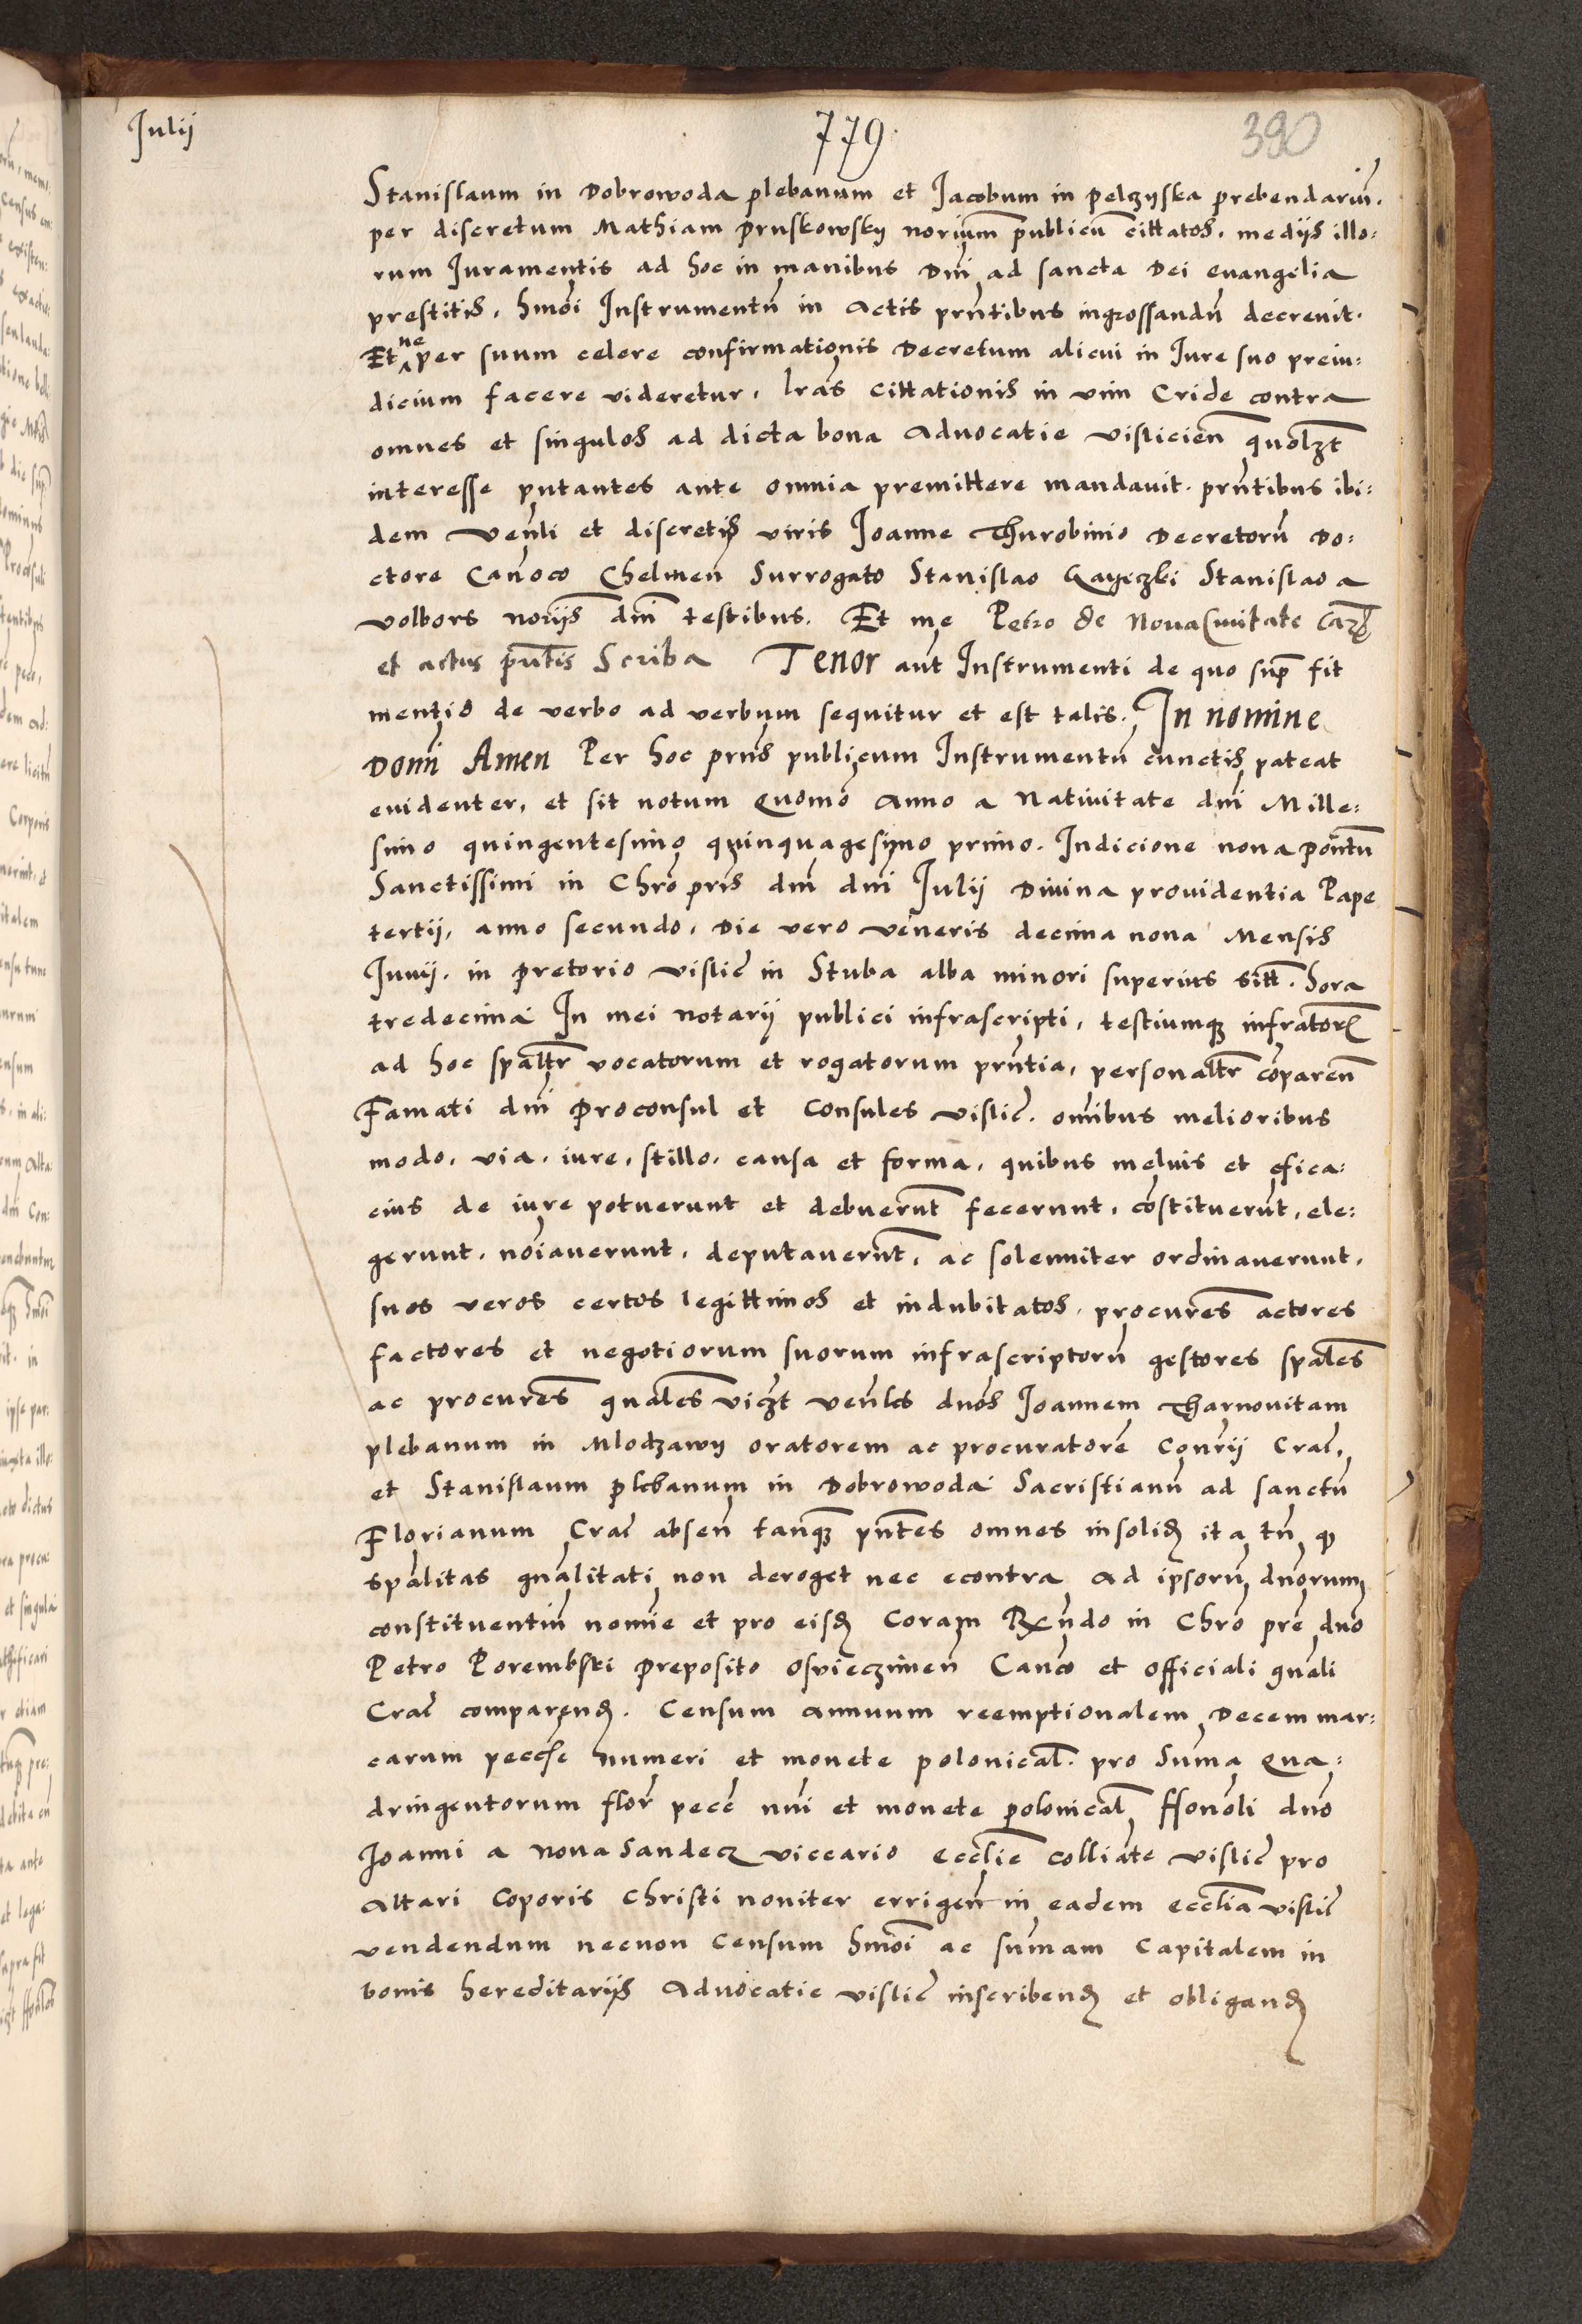 Julij
779
390
Stanislaum in Dobrowoda plebanum et Jacobum in pelczyska prebendariũ.
per discretum Mathiam Pruskowsky noriũm publicũ cittatos. mediis illo:
rum Juramentis ad hoc in manibus Dnĩ ad sancta Dei evangelia
prestitis. hmõi Instrumentũ in Actis prñtibus ingrossandũ decrevit.
Et ne per suum celere confirmationis Decretum alicui in Jure suo preiu:
dicium facere videretur. lrãs cittationis in vim Cride contra
omnes et singulos ad dicta bona Advocatie vislicieñ quolzt
interesse putantes ante omnia premittere mandavit. prñtibus ibi:
dem Venli et discretis viris Joanne Thurobinio Decretorũ Do:
ctore Canõco Chelmeñ Surrogato Stanislao Gayeczki Stanislao a
volbors noriis dnĩ testibus. Et me Petro de Nova Civitate
et actus prñtis Scriba Tenor aũt Instrumenti de quo sup fit
mentio de verbo ad verbum sequitur et est talis. In nomine
Domĩ Amen Per hoc prñs publicum Instrumentũ cunctis pateat
evidenter, et sit notum Quomõ Anno a Nativitate dnĩ Mille:
simo quingentesimo quinquagesimo primo. Indicione nona Pontũ
Sanctissimi in Chrõ pris dnĩ dnĩ Julij Divina providentia Pape
tertij, anno secundo, Die vero veneris decima nona Mensis
Junij. in pretorio vislic in Stuba alba minori superius sitt. hora
tredecima In mei notarij publici infrascripti, testiumq infrator
ad hoc spaltr vocatorum et rogatorum prñtia, personaltr cõpareñ
Famati dnĩ Proconsul et Consules vislic. omĩbus melioribus
modo, via, iure, stillo, causa et forma, quibus melvis et efica:
cius de iure potuerunt et debuerũt fecerunt, cõstituerũt, ele:
gerunt, noĩaverunt, deputaverũt, ac solemniter ordinaverunt,
suos veros certos legittimos et indubitatos, procures actores
factores et negotiorum suorum infrascriptorũ gestores spales
ac procures gnales viczt Venles dnõs Joannem Tharnovitam
plebanum in Mlodzawy oratorem ac procuratorẽ Conrij Crac,
et Stanislaum plebanum in Dobrowoda Sacristianũ ad sanctũ
Florianum Crac abseñ tanq pñtes omnes insolid ita tñ q
spalitas gnalitati non deroget nec econtra Ad ipsorũ dnorum
constituentiũ nomĩe et pro eisd Coram Rndo in Chrõ prẽ dno
Petro Porembski Preposito Osvieczimeñ Canco et officiali gnali
Crac comparend. Censum Annuum reemptionalem Decem mar:
carum pecce numeri et monete polonical. pro Sũma Qua:
dringentorum flor pecc nũi et monete polonical honoli dno
Joanni a Nova Sandecz viccario ecclie colliate vislic pro
Altari Coporis Christi noviter errigeñ in eadem ecclia vislic
vendendum necnon Censum hmõi ac sũmam Capitalem in
bonis hereditariis Advocatie vislic inscribend et obligand